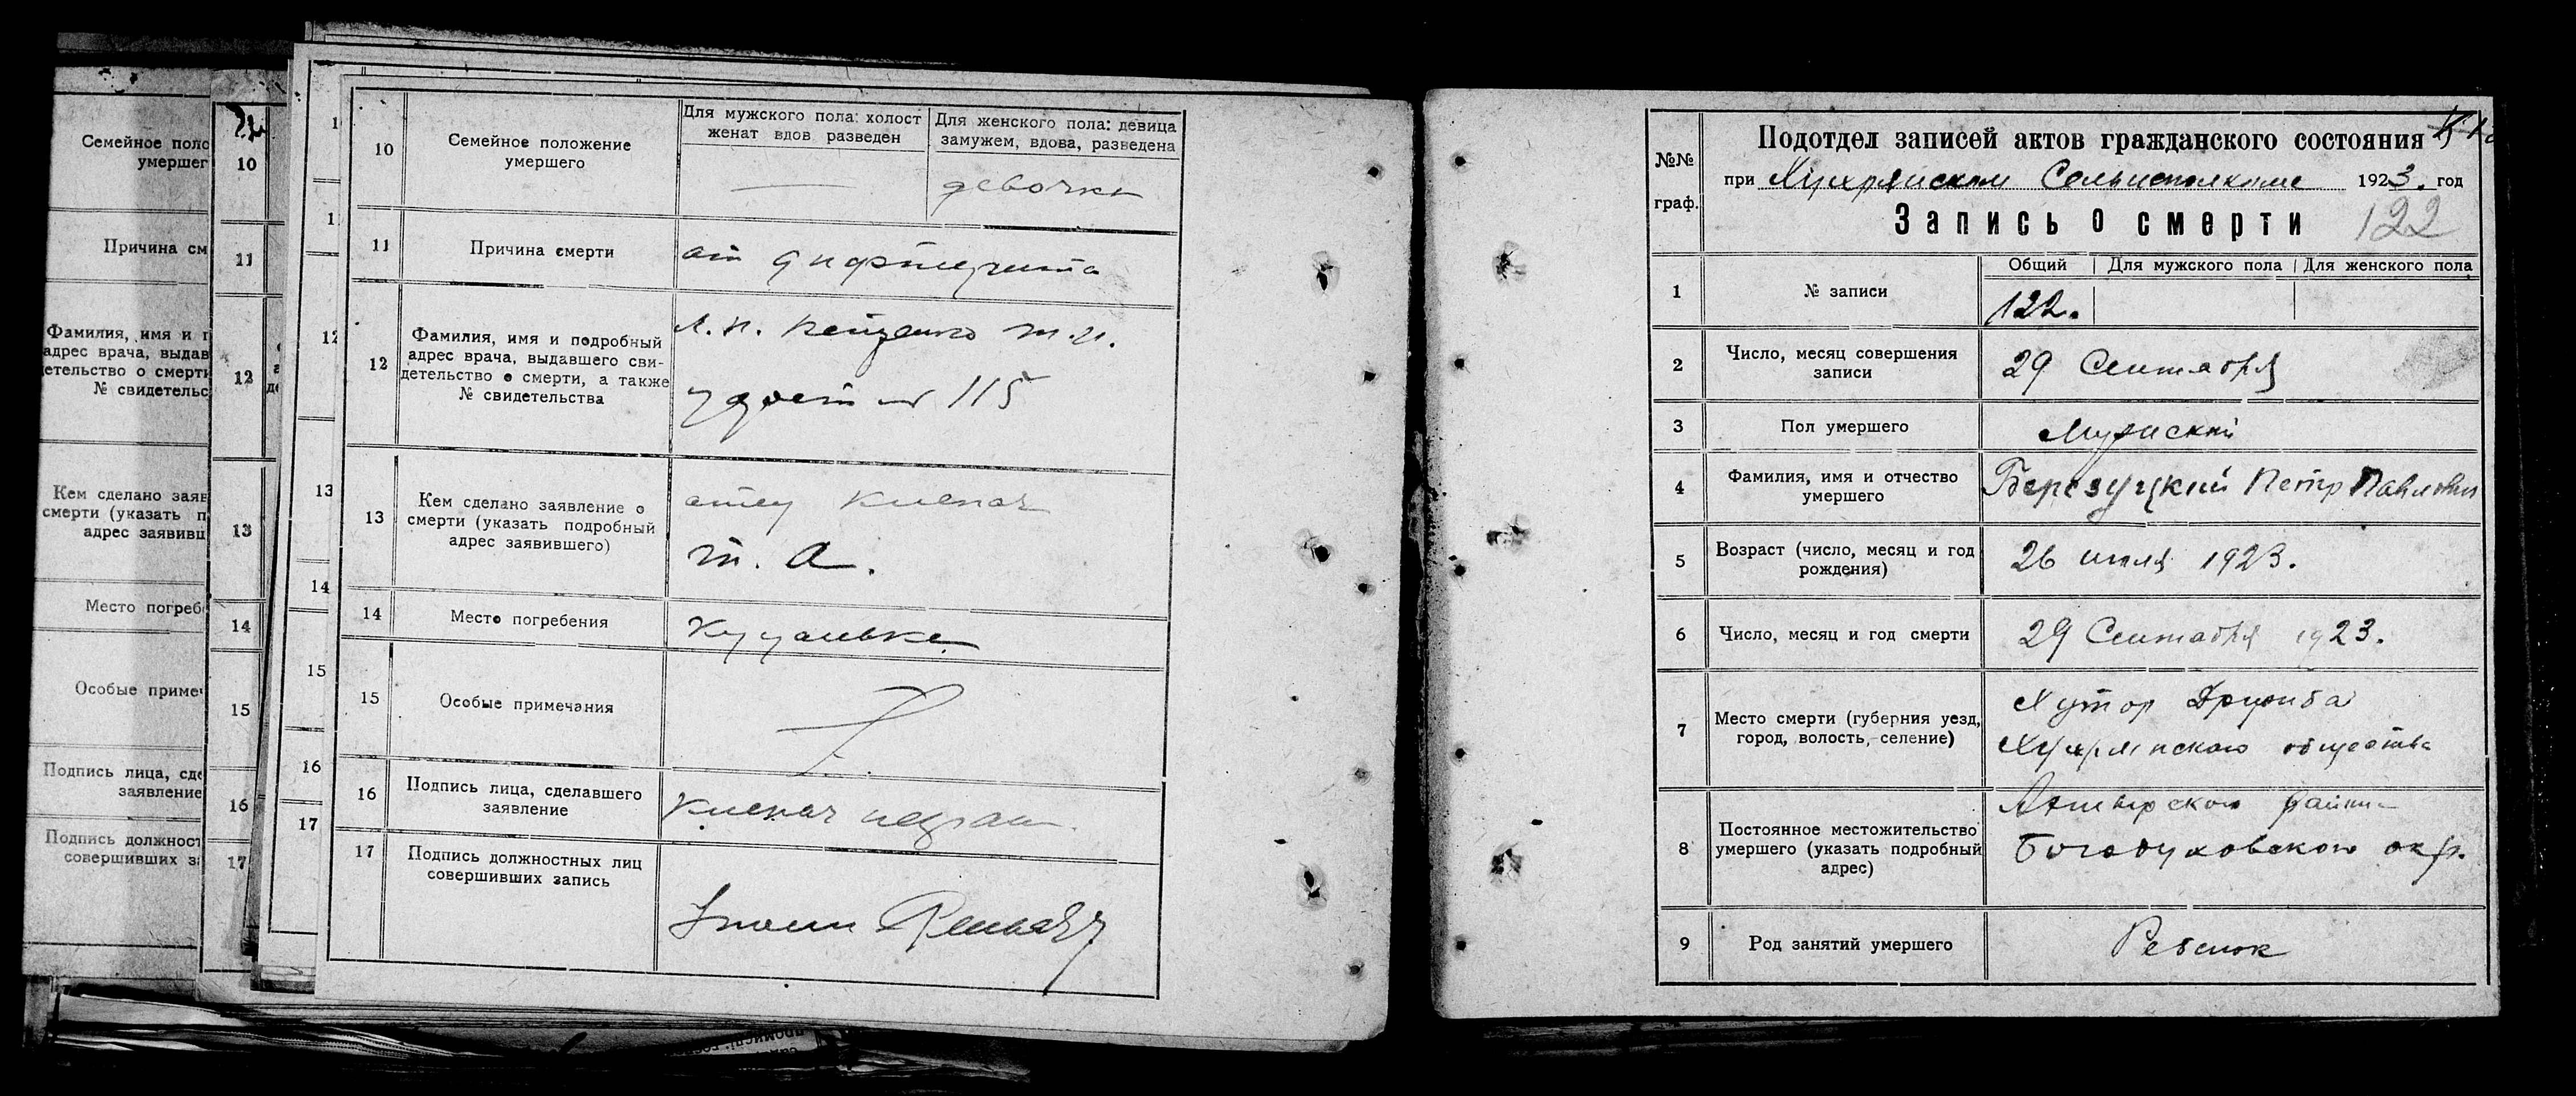 Семейное поло
умершег
10
Причина см
11
Фамилия, имя и п
адрес врача, выдав
етельство о смерти
№ свидетельс
12
Кем сделано заяв
смерти (указать п
адрес заявивш
13
Место погреб
14
Особые примеч
15
Подпись лица, сде
заявление
16
Подпись должност
совершивших за
17
12
13
14
15
16
17
10
Семейное положение
умершего
Для мужского пола: холост
женат вдов разведен
Для женского пола: девица
замужем, вдова, разведена
девочка
11
Причина смерти
от дифтерита
12
Фамилия, имя и подробный
адрес врача, выдавшего сви-
детельство о смерти, а также
№ свидетельства
удост № 115
13
Кем сделано заявление о
смерти (указать подробный
адрес заявившего)
отец
т. а.
14
Место погребения
15
Особые примечания
16
Подпись лица, сделавшего
заявление
17
Подпись должностных лиц
совершивших запись
№№
граф.
Подотдел записей актов гражданского состояния
при Хухрянском Сельисполкоме 1923. год
Запись о смерти 122
1
№ записи
Общий
Для мужского пола
Для женского пола
122.
2
Число, месяц совершения
записи
29 Сентября
3
Пол умершего
Мужской
4
Фамилия, имя и отчество
умершего
Березуцкий Петр Павлович
5
Возраст (число, месяц и год
рождения)
26 июля 1923.
6
Число, месяц и год смерти
29 Сентября 1923.
7
Место смерти (губерния уезд,
город, волость, селение)
Хутор Дружба
Хухрянского общества
8
Постоянное местожительство
умершего (указать подробный
адрес)
Ахтырского района
Богодуховского окр.
9
Род занятий умершего
Ребенок